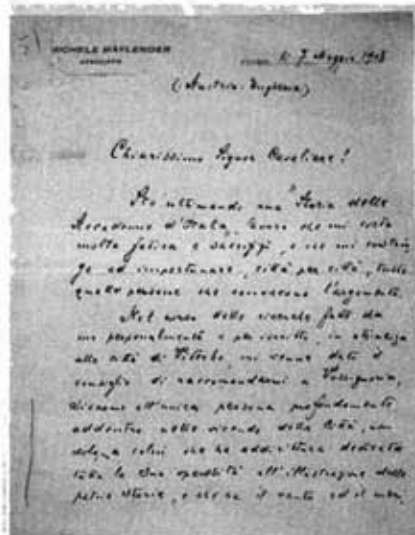 MICHELE MAYLENDER
AVVOCATO
li 7 Maggio 1908
(Austria-Ungheria)
Chiarissimo Signor Cavaliere!
Sto ultimando una "Storia delle
Accademie d'Italia, lavoro che mi costa
molta fatica e sacrifizî, e che mi costrin
ge ad importunare, città per città, tutte
quelle persone che conoscono l'argomento.
Nel corso delle ricerche fatte da
me personalmente e per iscritto, in attinenza
alla città di Viterbo, mi venne dato il
consiglio di raccomandarmi a Vossignoria,
siccome all'unica persona profondamente
addentro nelle vicende della città, non
a colui che ha addirittura dedicata
tutta la Sua operosità all'illustrazione delle
patrie storie, e che ha il vanto ed il